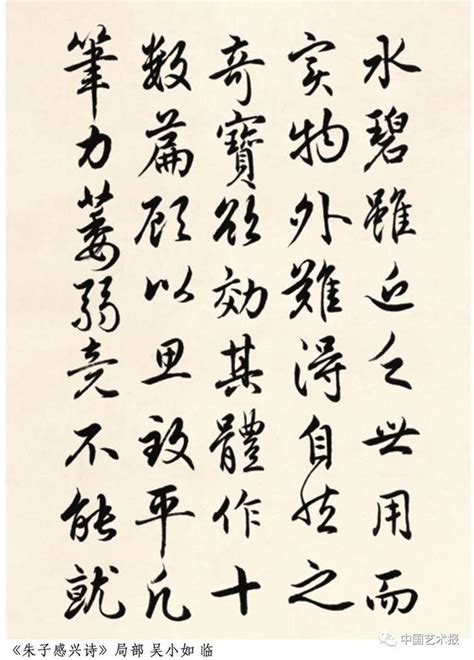 水碧雖近乏世用而
实物外難得自然之
奇寶欲効其體作十
数篇顾以思致平凡
筆力萎弱竟不能就
《朱子感兴诗》局部 吴小如 临
中国艺术报